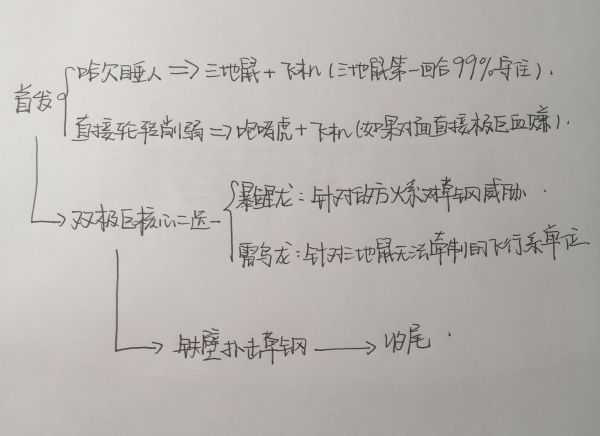 首发
哈欠睡人 => 三地鼠 + 飞机 (三地鼠第一回合99%守住).
直接轮轮削弱 => 咆哮虎 + 飞机 (如果对面直接极巨血赚).
双极巨核心二选一
暴鲤龙：针对敌方火系对草钢威胁.
雷鸟龙：针对三地鼠无法牵制的飞行系单位
铁壁扑击草钢 → 收尾.